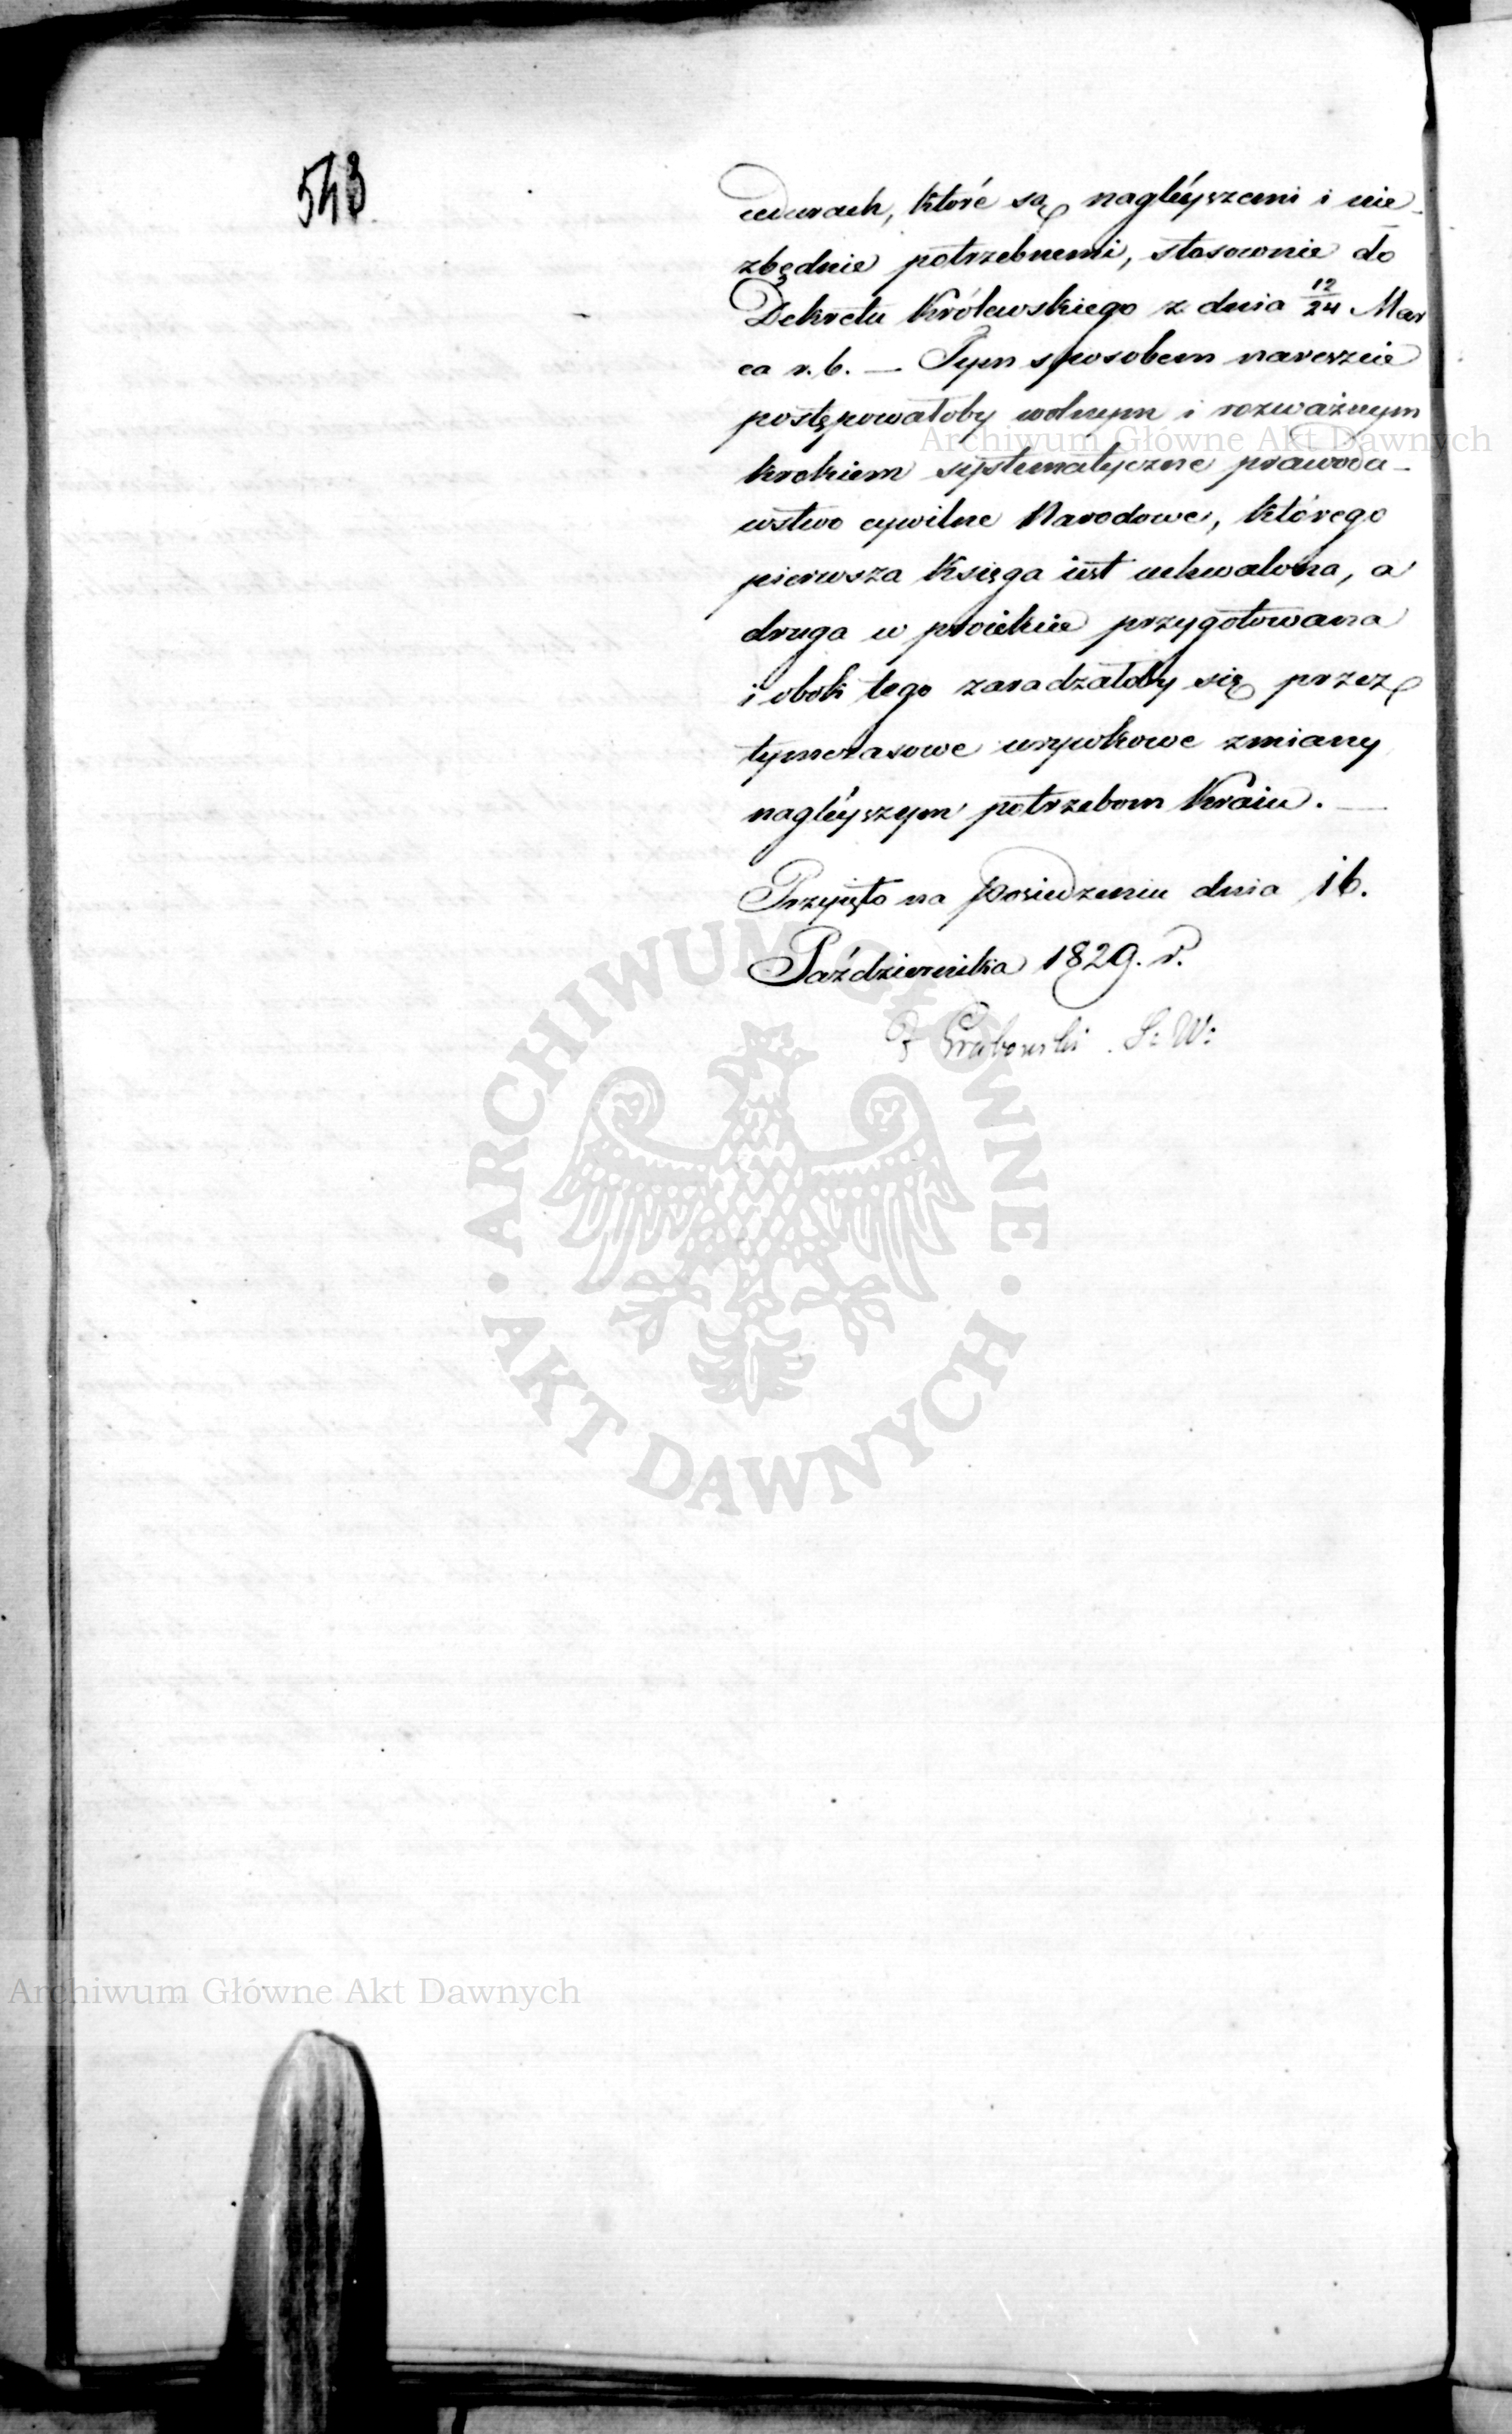 543
cedurach, które są nagléyszemi i nie-
zbędnie potrzebnemi, stosownie do
Dekretu Królewskiego z dnia 12/24 Mar
ca r. b. — Tym sposobem nareszcie
postępowałoby wolnym i rozważnym
Archiwum Główne Akt Dawnych
krokiem systematyczne prawoda-
wstwo cywilne Narodowe, którego
pierwsza Księga iest uchwalona, a
druga w proiekcie przygotowana
i obok tego zaradzałoby się przez
tymczasowe wyrywkowe zmiany
nagléyszym potrzebom Kraiu. —
Przyięto na Posiedzeniu dnia 16.
Października 1829. r.
Grabowski S: W:
ARCHIWUM GŁÓWNE
AKT DAWNYCH
Archiwum Główne Akt Dawnych